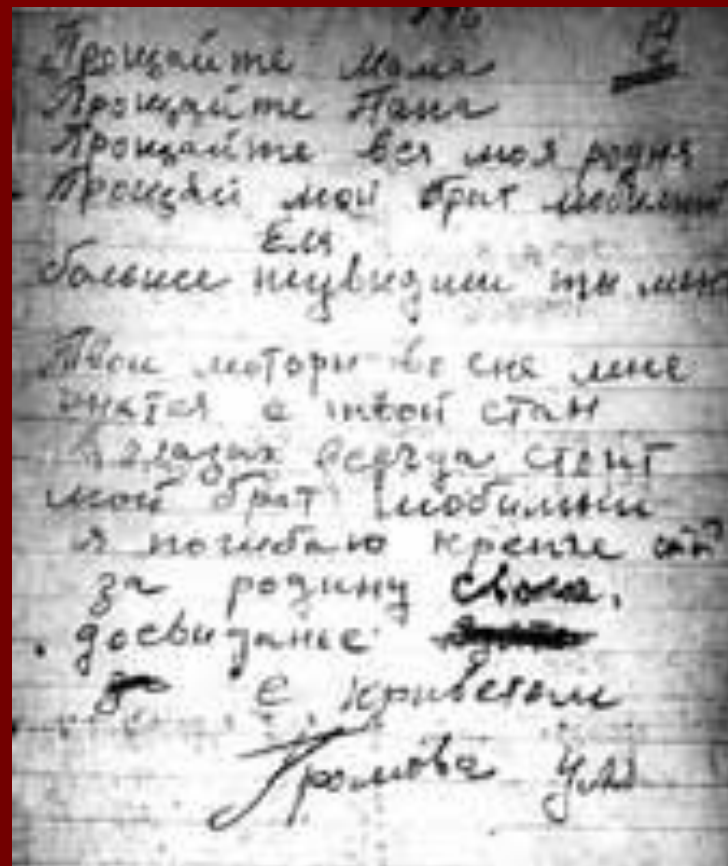 Прощайте Мама
Прощайте Папа
Прощайте вся моя родня
Прощай мой брат любимый
Еля
больше неувидиш ты меня
Твои моторы во сне мне
снятся
твой стан
в глазах всегда стоит
мой брат любимый
я погибаю крепче
за родину свою.
досвиданье
с приветом
Громова Уля